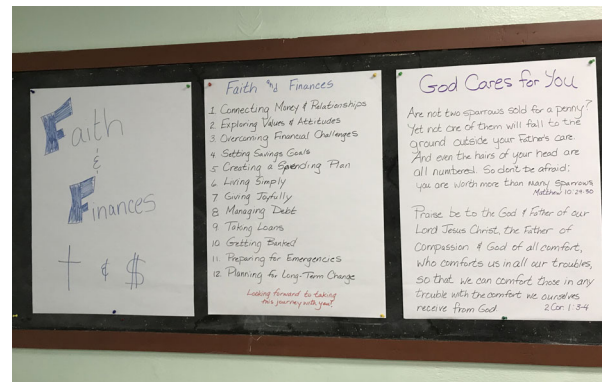 Faith
&
Finances
† & $
Faith and Finances
1. Connecting Money & Relationships
2. Exploring Values & Attitudes
3. Overcoming Financial Challenges
4. Setting Savings Goals
5. Creating a Spending Plan
6. Living Simply
7. Giving Joyfully
8. Managing Debt
9. Taking Loans
10. Getting Banked
11. Preparing for Emergencies
12. Planning for Long-Term Change
Looking forward to taking
this journey with you!
God Cares for You
Are not two sparrows sold for a penny?
Yet not one of them will fall to the
ground outside your Father's care.
And even the hairs of your head are
all numbered. So don't be afraid;
you are worth more than many sparrows.
Matthew 10:29-30
Praise be to the God & Father of our
Lord Jesus Christ, the Father of
Compassion & God of all comfort,
who comforts us in all our troubles,
so that we can comfort those in any
trouble with the comfort we ourselves
receive from God. 2 Cor. 1:3-4